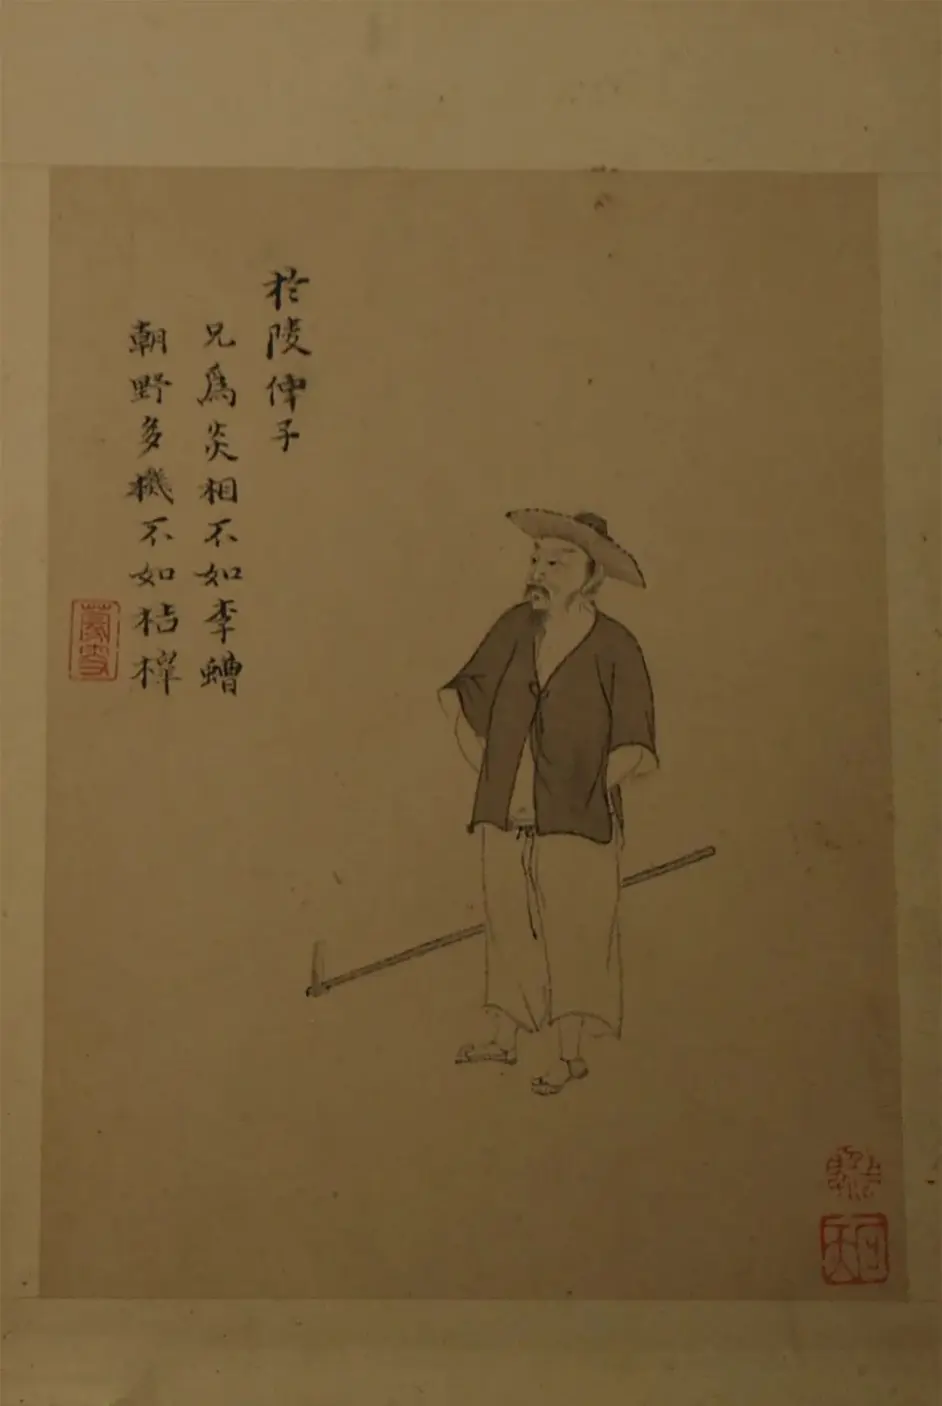 於陵仲子
兄為炎相不如李螬
朝野多機不如桔槔